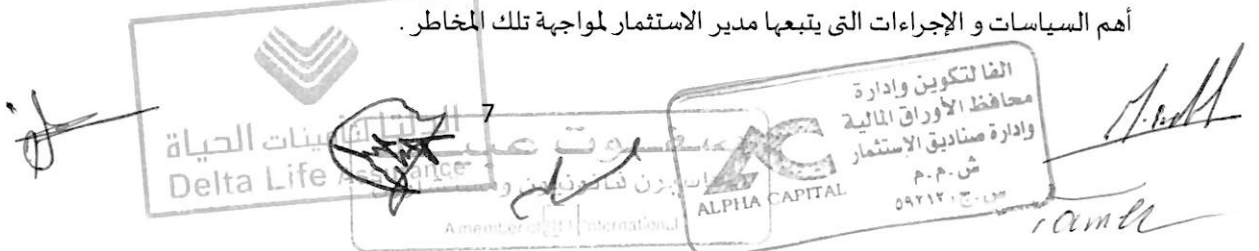 أهم السياسات و الإجراءات التى يتبعها مدير الاستثمار لمواجهة تلك المخاطر .
7
الدلتا لتأمينات الحياة
Delta Life Assurance
A member of International
الفا لتكوين وادارة
محافظ الأوراق المالية
وإدارة صناديق الإستثمار
ش.م.م
س.ج.٥٩٢١٢٠
ALPHA CAPITAL